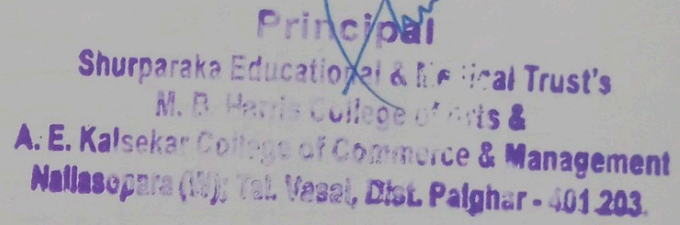 Principal
Shurparaka Educational & Medical Trust's
M. B. Harris College of Arts &
A. E. Kalsekar College of Commerce & Management
Nallasopara (W); Tal. Vasai, Dist. Palghar - 401 203.